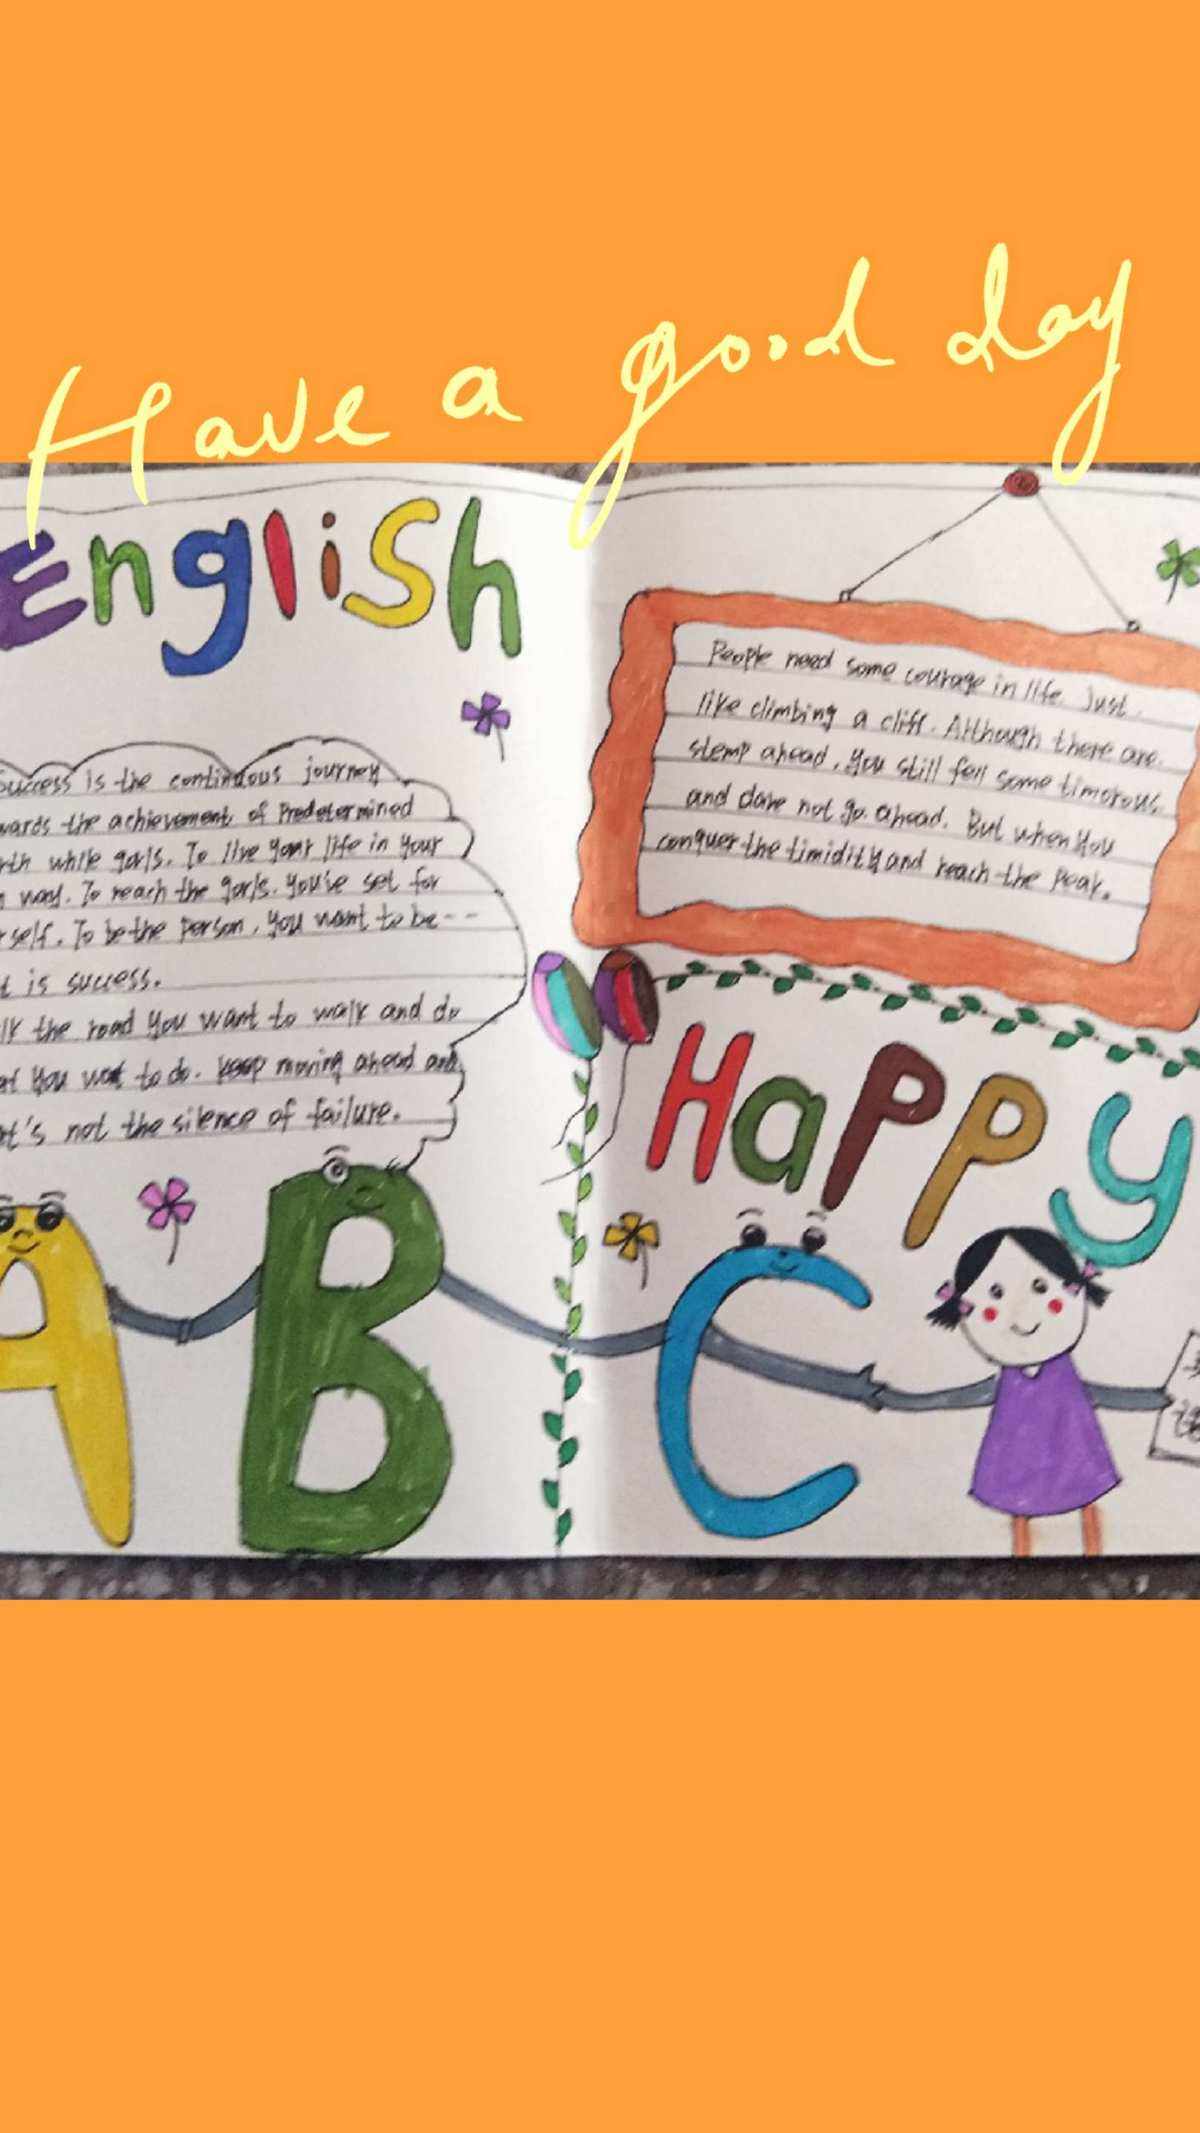 Have a good day
English
Success is the continuous journey
wards the achievement of Predetermined
rth while gorls. To live your life in your
n way. To reach the gorls. you've set for
rself. To be the person, you want to be--
t is success.
lk the road you want to walk and do
at you want to do. keep moving ahead and
at's not the silence of failure.
People need some courage in life. Just
like climbing a cliff. Although there are
stemp ahead, you still fell some timorous,
and dare not go ahead. But when you
conquer the timidity and reach the Peak.
Happy
A B C